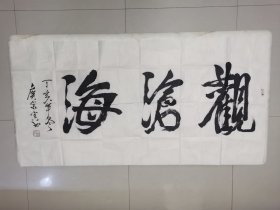 觀滄海
丁亥年冬